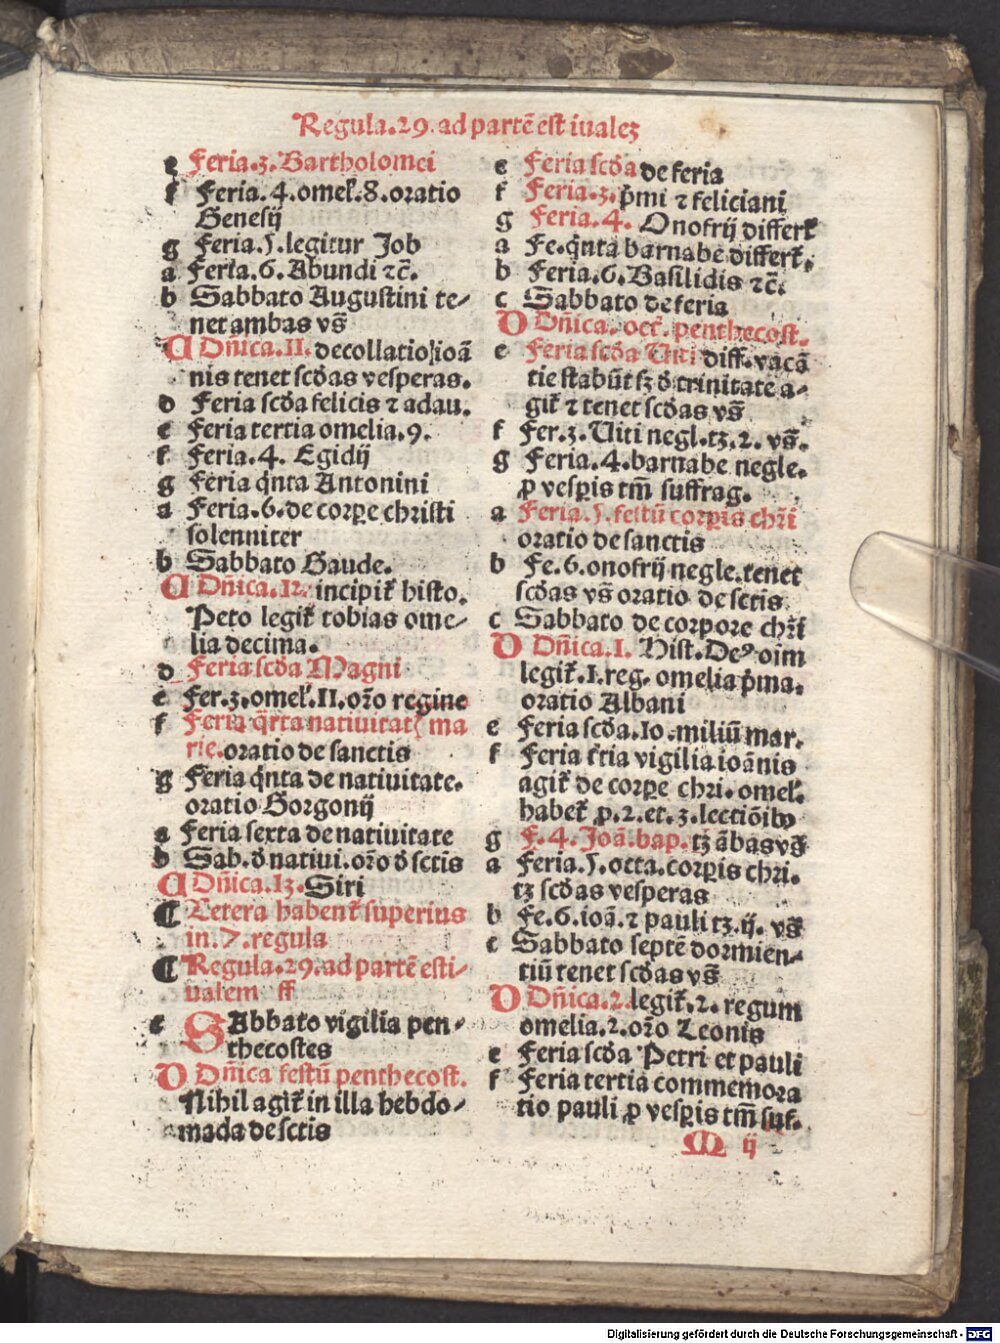 Regula.29. ad partē est iualeʒ
e Feria.3. Bartholomei
f Feria.4.omel̓.8.oratio
Genesij
g Feria.5.legitur Job
a Feria.6.Abundi ⁊c̄.
b Sabbato Augustini te⸗
net ambas vs̄
A Dn̄ica.II.decollatio ioā
nis tenet scd̓as vesperas.
d Feria scd̓a felicis ⁊ adau.
e Feria tertia omelia.9.
f Feria.4. Egidij
g Feria qn̓ta Antonini
a Feria.6.de corpꝑe christi
solenniter
b Sabbato Gaude.
A Dn̄ica.12. incipit̓ histo.
Peto legit̓ tobias ome⸗
lia decima.
d Feria scd̓a Magni
e Fer.3.omel̓.II.or̄o regine
f Feria qr̓ta natiuitatꝭ ma
rie.oratio de sanctis
g Feria qn̓ta de natiuitate.
oratio Gorgonij
a Feria sexta de natiuitate
b Sab.d̓ natiui.or̄o d̓ sctis
A Dn̄ica.13.Siri
¶ Cetera habent̓ superius
in.7.regula
¶ Regula.29.ad partē esti⸗
ualem ff
c SAbbato vigilia pen⸗
thecostes
D Dn̄ica festū penthecost.
Nihil agit̓ in illa hebdo⸗
mada de sctis
e Feria scd̓a de feria
f Feria.3.p̓mi ⁊ feliciani
g Feria.4. Onofrij differt̓
a Fe.qn̓ta barnabe differt̓.
b Feria.6.Basilidis ⁊c̄.
c Sabbato de feria
D Dn̄ica.oct̓. penthecost.
e Feria scd̓a Uiti diff.vacā
tie stabūt sꝫ d̓ trinitate a⸗
git̓ ⁊ tenet scd̓as vs̄
f Fer.3.Uiti negl.tꝫ.2. vs̄.
g Feria.4.barnabe negle.
ꝓ vesꝑis tm̄ suffrag.
a Feria.5.festū corꝑis chr̄i
oratio de sanctis
b Fe.6.onofrij negle.tenet
scd̓as vs̄ oratio de sctis
c Sabbato de corpore chr̄i
D Dn̄ica.I. Hist. Deꝰ oim
legit̓.I.reg. omelia p̓ma.
oratio Albani
e Feria scd̓a.10.miliū mar.
f Feria t̓tia vigilia ioānis
agit̓ de corꝑe chri.omel̓.
habet̓ ꝓ.2.et.3.lectiōibꝰ
g F.4.Joā.bap.tꝫ ābas vs̄
a Feria.5.octa.corꝑis chri.
tꝫ scd̓as vesperas
b Fe.6.ioā.⁊ pauli tꝫ.ij. vs̄
c Sabbato septē dormien⸗
tiū tenet scd̓as vs̄
D Dn̄ica.2.legit̓.2. regum
omelia.2.or̄o Leonis
e Feria scd̓a Petri et pauli
f Feria tertia commemora
tio pauli ꝓ vesꝑis tm̄ suf.
M ij
Digitalisierung gefördert durch die Deutsche Forschungsgemeinschaft - DFG